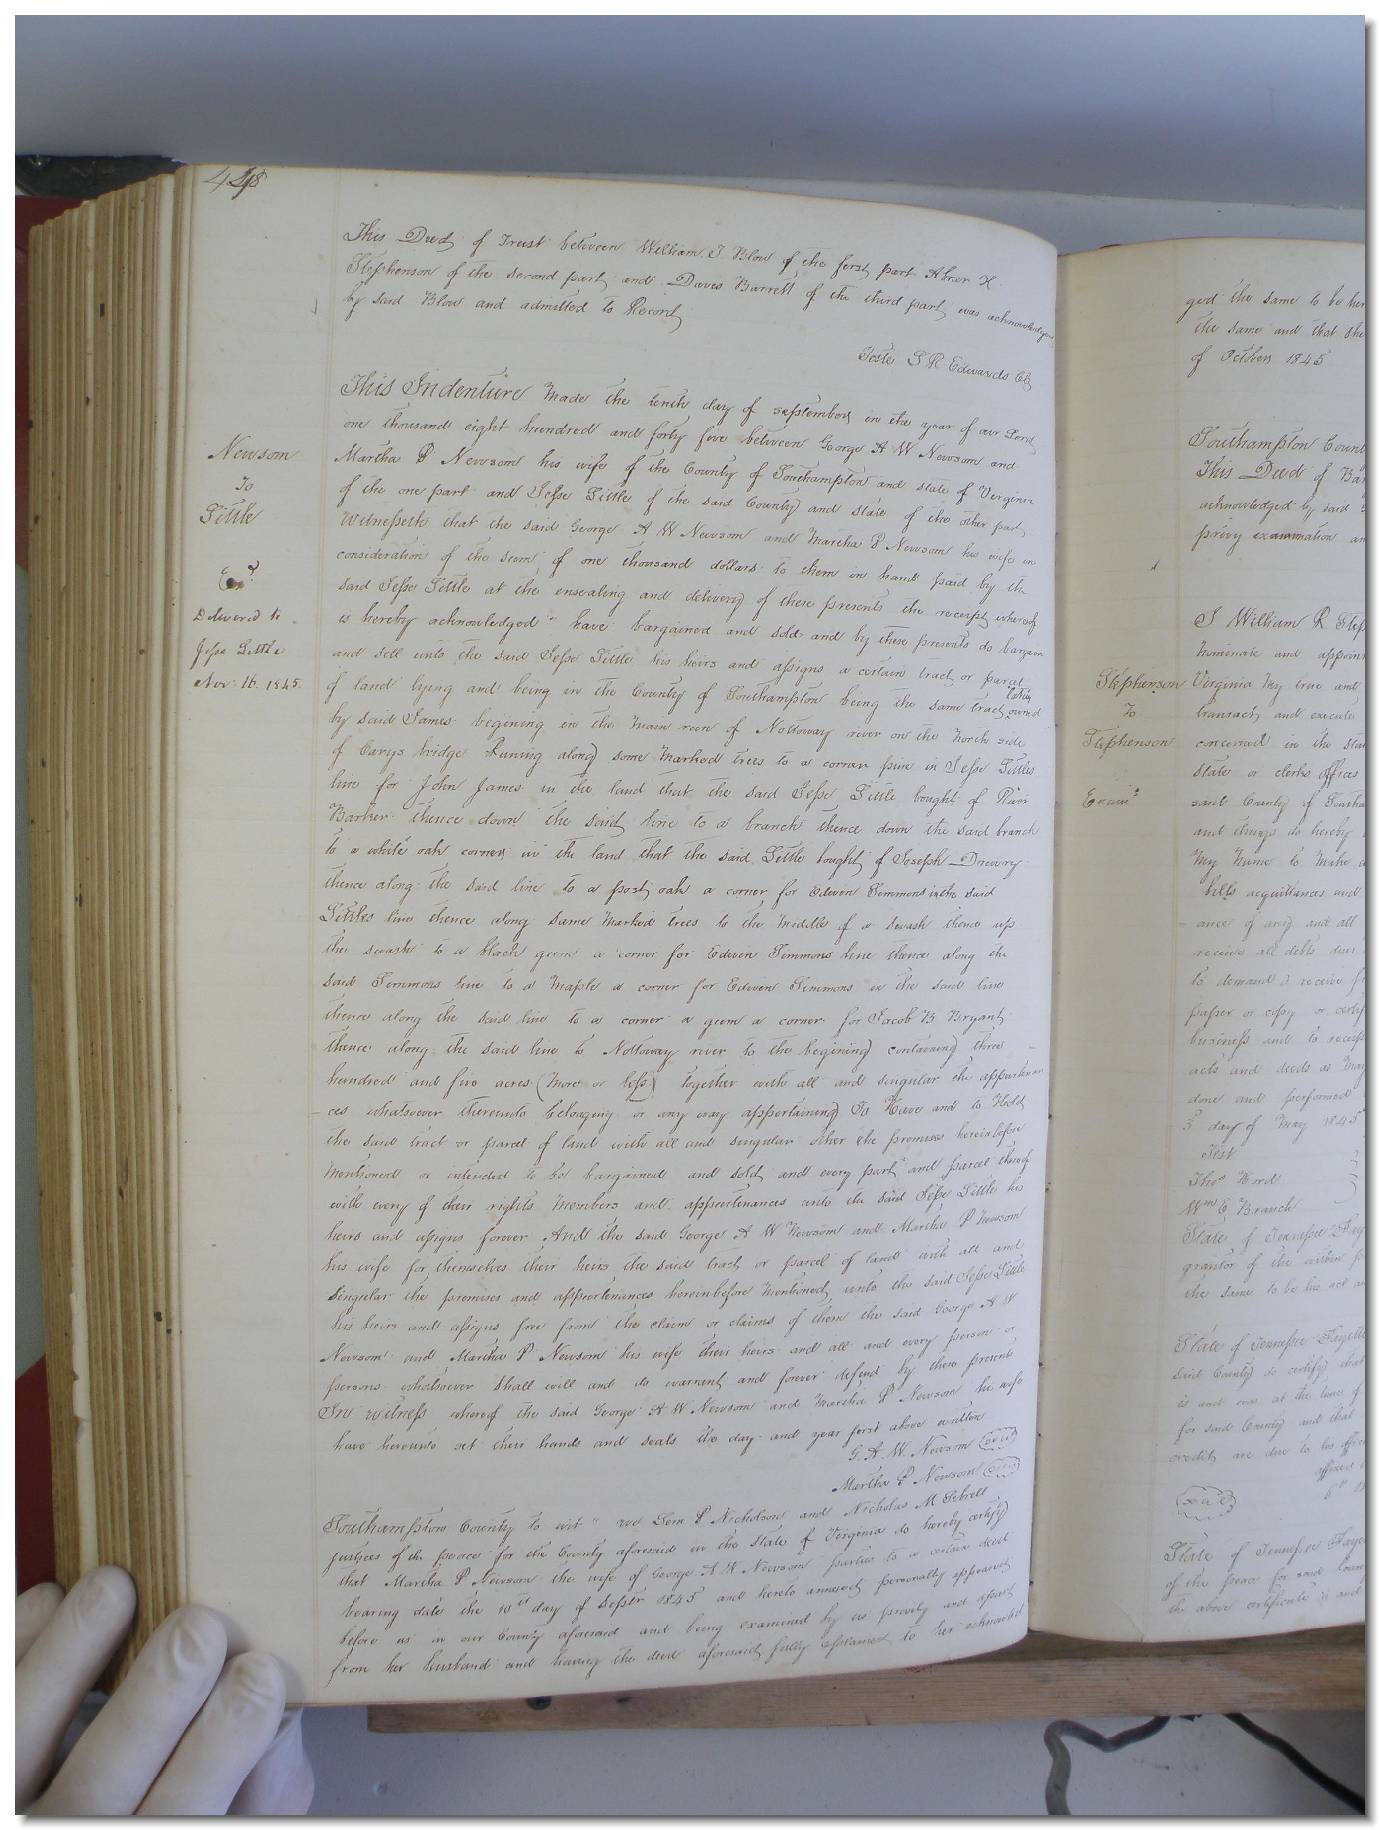 448
This Deed of Trust between William I Blow of the first part Abner
Stephenson of the second part and Davis Barrett of the third part was acknowledged
by said Blow and admitted to Record
Teste L R Edwards Clk
This Indenture Made the tenth day of september in the year of our Lord
one thousand eight hundred and forty five between George A W Newsom and
Newsom
To
Little
Exd
Delivered to
Jesse Little
Nov. 16. 1845.
Martha P Newsom his wife of the County of Southampton and state of Virginia
of the one part and Jesse Little of the said County and state of the other part
Witnesseth that the said George A W Newsom and Martha P Newsom his wife in
consideration of the sum of one thousand dollars to them in hand paid by the
said Jesse Little at the ensealing and delivery of these presents the receipt whereof
is hereby acknowledged have bargained and sold and by these presents do bargain
and sell unto the said Jesse Little his heirs and assigns a certain tract or parcel
of land lying and being in the County of Southampton being the same tract owned
by said James begining in the main run of Nottoway river on the North side
of Carys bridge Runing along some marked trees to a corner pine in Jesse Littles
line for John James in the land that the said Jesse Little bought of
Barker thence down the said line to a branch thence down the said branch
to a white oak corner in the land that the said Little bought of Joseph Drewry
thence along the said line to a post oak a corner for Edwin Simmons in the said
Littles line thence along same marked trees to the Middle of a swash thence up
the swash to a black gum a corner for Edwin Simmons line thence along the
said Simmons line to a Maple a corner for Edwin Simmons in the said line
thence along the said line to a corner a gum a corner for Jacob B Bryant
thence along the said line to Nottoway river to the begining containing three
hundred and five acres (more or less) together with all and singular the appurtenan
ces whatsoever thereunto belonging or any way appertaining To Have and to Hold
the said tract or parcel of land with all and singular other the premises hereinbefore
mentioned or intended to be bargained and sold and every part and parcel thereof
with every of their rights Members and appurtenances unto the said Jesse Little his
heirs and assigns forever And the said George A W Newsom and Martha P Newsom
his wife for themselves their heirs the said tract or parcel of land with all and
Singular the premises and appurtenances hereinbefore Mentioned unto the said Jesse Little
his heirs and assigns free from the claim or claims of them the said George A W
Newsom and Martha P Newsom his wife their heirs and all and every person or
persons whatsoever shall will and do warrant and forever defend by these presents
In witness whereof the said George A W Newsom and Martha P Newsom his wife
have hereunto set their hands and seals the day and year first above written
G. A. W. Newsom (seal)
Martha P Newsom (seal)
Southampton County to wit we P Nicholson and Nicholas M Sebrell
justices of the peace for the County aforesaid in the State of Virginia do hereby certify
that Martha P Newsom the wife of George A W Newsom parties to a certain deed
bearing date the 10th day of Septr 1845 and hereto annexed personally appeared
before us in our County aforesaid and being examined by us privily and apart
from her husband and having the deed aforesaid fully explained to her acknowled
ged the same to be her
the same and that she
of October 1845
Southampton Count
This Deed of Ba
acknowledged by said
privy examination an
Stephenson
To
Stephenson
Examd
I William R Step
nominate and appoin
Virginia My true and
transact and execute
concerned in the sta
State or clerks offices
said County of Southa
and things do hereby
My Name to make
bills acquittances and
ance of any and all
receive all debts due
to demand & receive
paper or copy or certif
business and to receip
acts and deeds as may
done and performed
3 day of May 1845
Test
Thos Hurd
Wm E Branch
State of Tennessee Fay
grantor of the within
the same to be his act an
State of Tennessee Fayette
said County do certify that
is and was at the time of
for said County and that
credit are due to his offic
affixed
6th
(seal)
State of Tennessee Faye
of the peace for said Coun
the above certificate is and